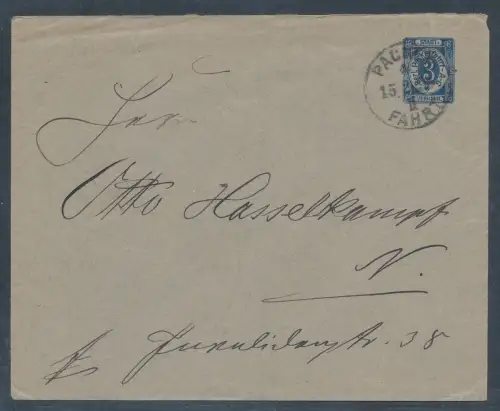 PAC
3
15.
FAHR
Herrn
Otto Hasselkampf
N.
Invalidenstr. 38